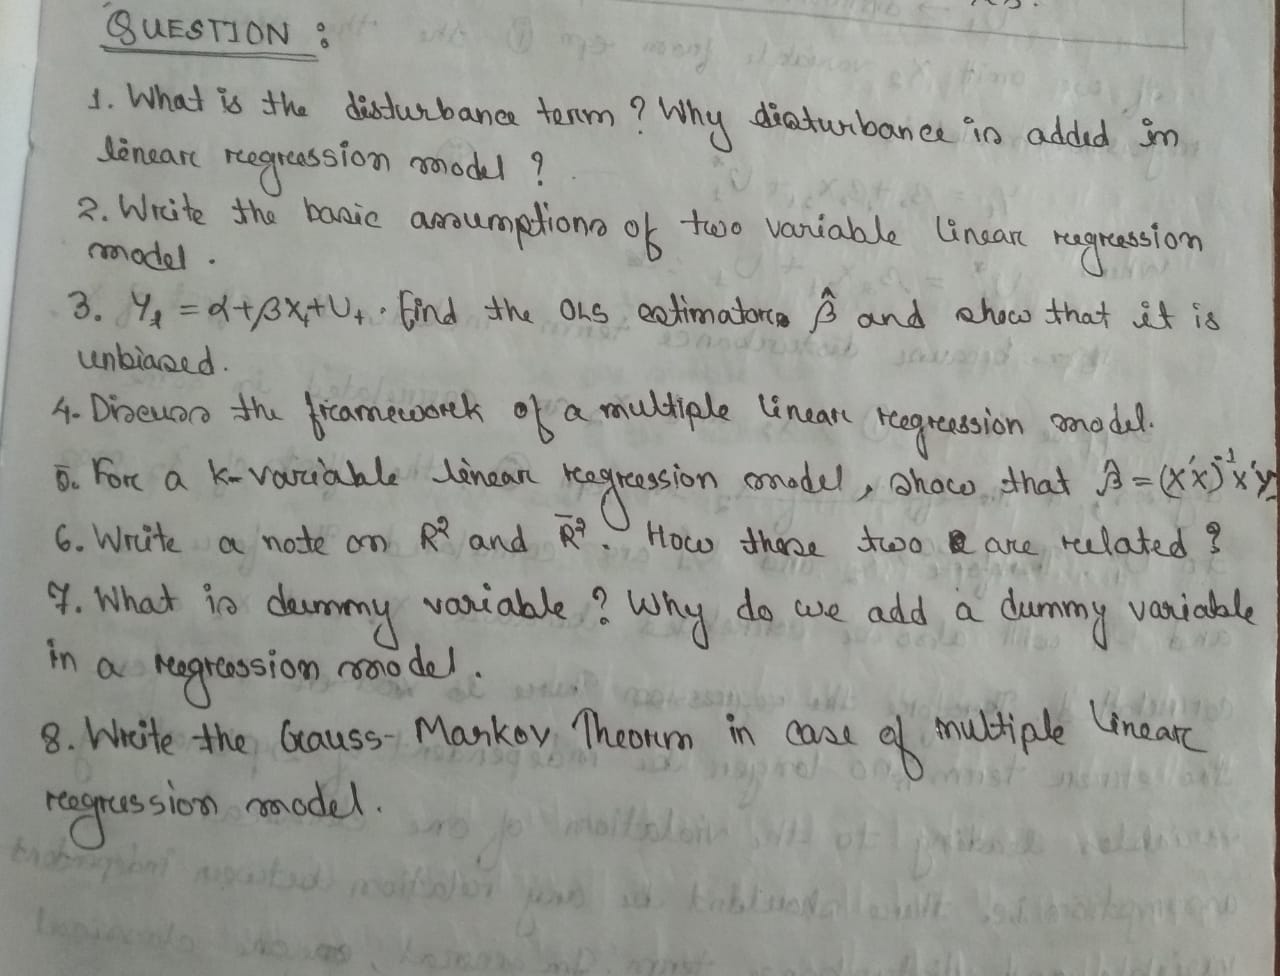 QUESTION :
1. What is the disturbance term ? Why disturbance is added in
linear regression model ?
2. Write the basic assumptions of two variable linear regression
model .
3. Yt = α+βXt+Ut . Find the OLS estimators β̂ and show that it is
unbiased.
4. Discuss the framework of a multiple linear regression model.
5. For a k-variable linear regression model, show that β̂ = (x'x)⁻¹x'y
6. Write a note on R² and R̄². How these two are related ?
7. What is dummy variable ? Why do we add a dummy variable
in a regression model .
8. Write the Gauss-Markov Theorem in case of multiple linear
regression model .